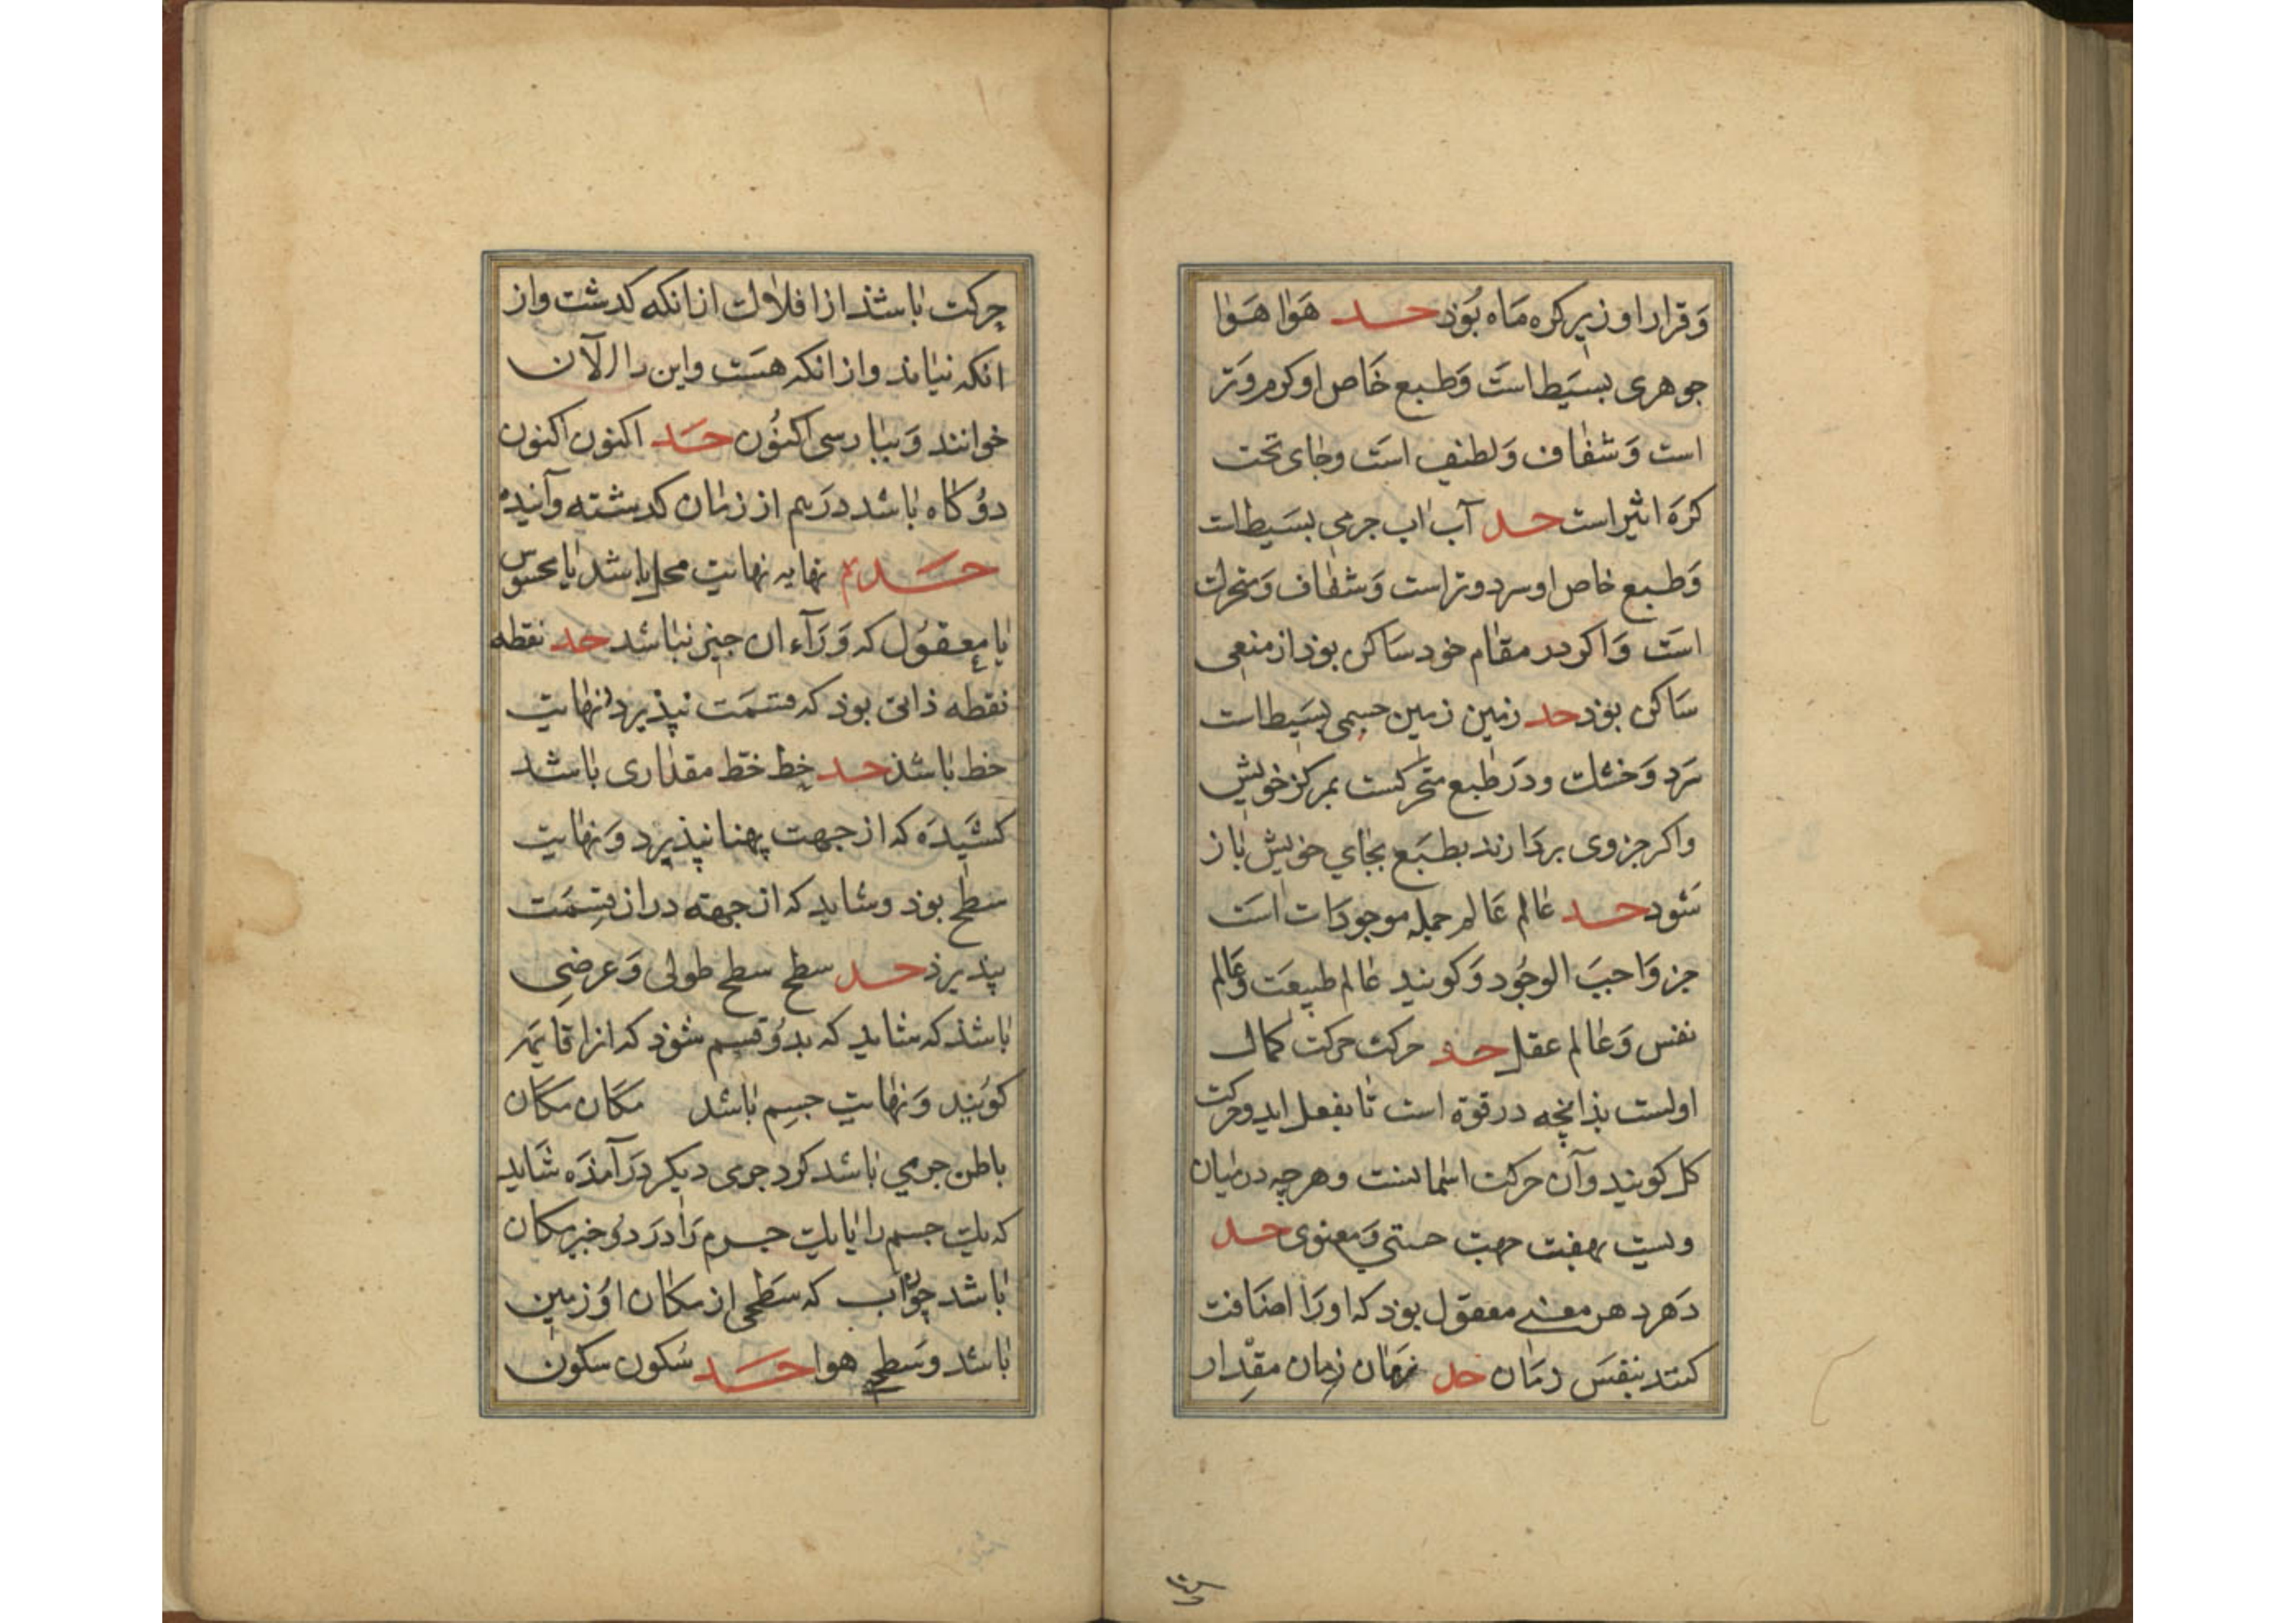 وَقرار او زیر کره مَاه بُوَذ حد هَوا هَوا
جوهری بسیَط استَ وَطبع خَاص او کرم وَتر
است وَشفاف وَلطیف استَ وجای تحت
کرَهٔ اثیر است حد آب اب جرمی بسَیط است
وَطبع خاص او سرد و تر است وَشفاف وَمتحرک
استَ وَاکر در مقام خود سَاکن بوذ از منعی
سَاکن بوَذ حد زمین زمین جسمی بسَیط است
سَرد وَخشک ودرَ طبع متحَرکست بمرکز خویش
واکر جزوی بردَارند بطبَع بجای خویش باز
شَود حد عالم عَالم جمله موجودَات استَ
جز وَاجبَ الوجُود وَکویند عالم طبیعَت وَعَالم
نفس وَعالم عقل حد حرکت حرکت کمال
اولست بذانچه در قوة است تا بفعل اید وحرکت
کل کویند وآن حرکت اسمانست وهرچه درمیان
ویست بهفت جهت حسّی وَمعنوی حد
دَهر دهر معنی معقول بوذ که اورَا اضَافت
کنند بنفسَ زمَان حد زمَان زمان مقدار
حرکت باشذ از افلاک از انکه کدشت واز
انکه نیاید واز انکه هستَ واین را الآن
خوانند وَبپارسی اکنُون حَد اکنون اکنون
دوُ کاه باشد درَهم از زمان کدشته وآینده
حَد نهایه نهایت محل باشد یا محسوس
یا معقوُل که وَرَآء ان چیز نباشد حد نقطه
نقطه ذاتی بوذ که قسَمت نپذیرد ونهایت
خط باشذ حد خط خط مقداری باشد
کشَیدَه که از جهت پهنا نپذیرد وَنهایت
سَطح بوذ وشاید که از جهته دراز قِسمَت
پذیرذ حد سطح سطح طولی وَعرضی
باشذ که شاید که بدوُ قسم شوَذ که انرا قایمَ
کویَند وَنهایت جسِم باشد مکَان مکَان
باطن جرمی باشد کرد جرمی دیکر درَ آمذَه شَاید
که یک جسم را یا یک جرم رَا درَ دو خیز مکان
باشد چوُن آب که سَطحی از مکان اوُ زمین
باشد وسَطح هوا حَد سُکون سکون